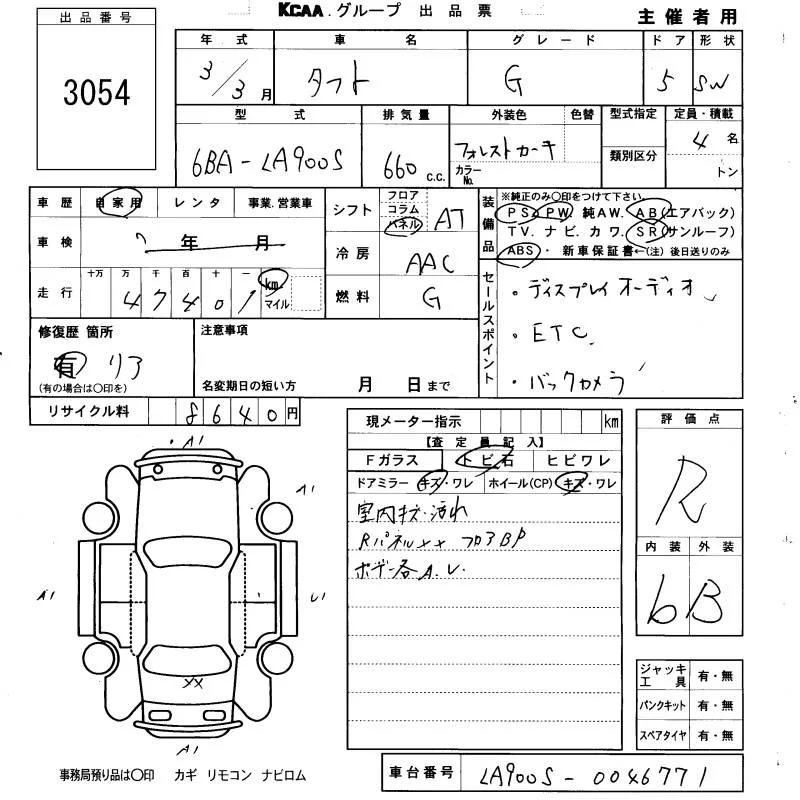 KCAA.グループ 出品票
主催者用
出品番号
3054
年式 車名 グレード ドア 形状
3/3月 タフト G 5 SW
型式 排気量 外装色 色替 型式指定 定員・積載
6BA-LA900S 660 c.c. フォレストカーキ 4名
カラーNo. 類別区分 トン
車歴 自家用 レンタ 事業.営業車
車検 年 月
走行 十万 万 千 百 十 一
4 7 4 0 1 km. マイル
シフト フロア コラム パネル AT
冷房 AAC
燃料 G
装備品 ※純正のみ○印をつけて下さい。
PS. PW. 純AW. AB(エアバック)
TV. ナビ. カワ. SR(サンルーフ)
ABS・ 新車保証書←(注)後日送りのみ
セールスポイント
・ディスプレイオーディオ
・ETC
・バックカメラ
修復歴 箇所
有 リア
(有の場合は○印を)
注意事項
名変期日の短い方 月 日まで
リサイクル料 8640円
現メーター指示 km
【査定員記入】
Fガラス トビ石 ヒビワレ
ドアミラー キズ・ワレ ホイール(CP) キズ・ワレ
室内キズ・汚れ
Rパネルxx フロアBP
ボデー各A.U.
評価点
R
内装 外装
6 B
A1
A1
A1 U1
XX
A1
ジャッキ工具 有・無
パンクキット 有・無
スペアタイヤ 有・無
事務局預り品は○印 カギ リモコン ナビロム
車台番号 LA900S-0046771